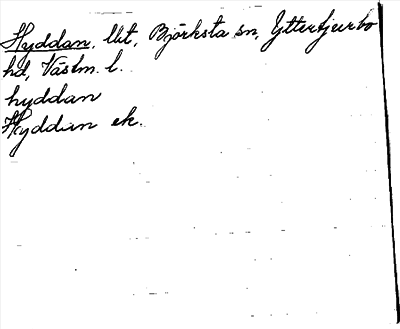 Hyddan, lht, Björksta sn, Yttertjurbo
hd, Västm. l.
hyddan
Hyddan ek.